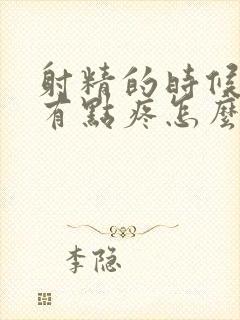 射精的時候
有點疼怎麼
李隐